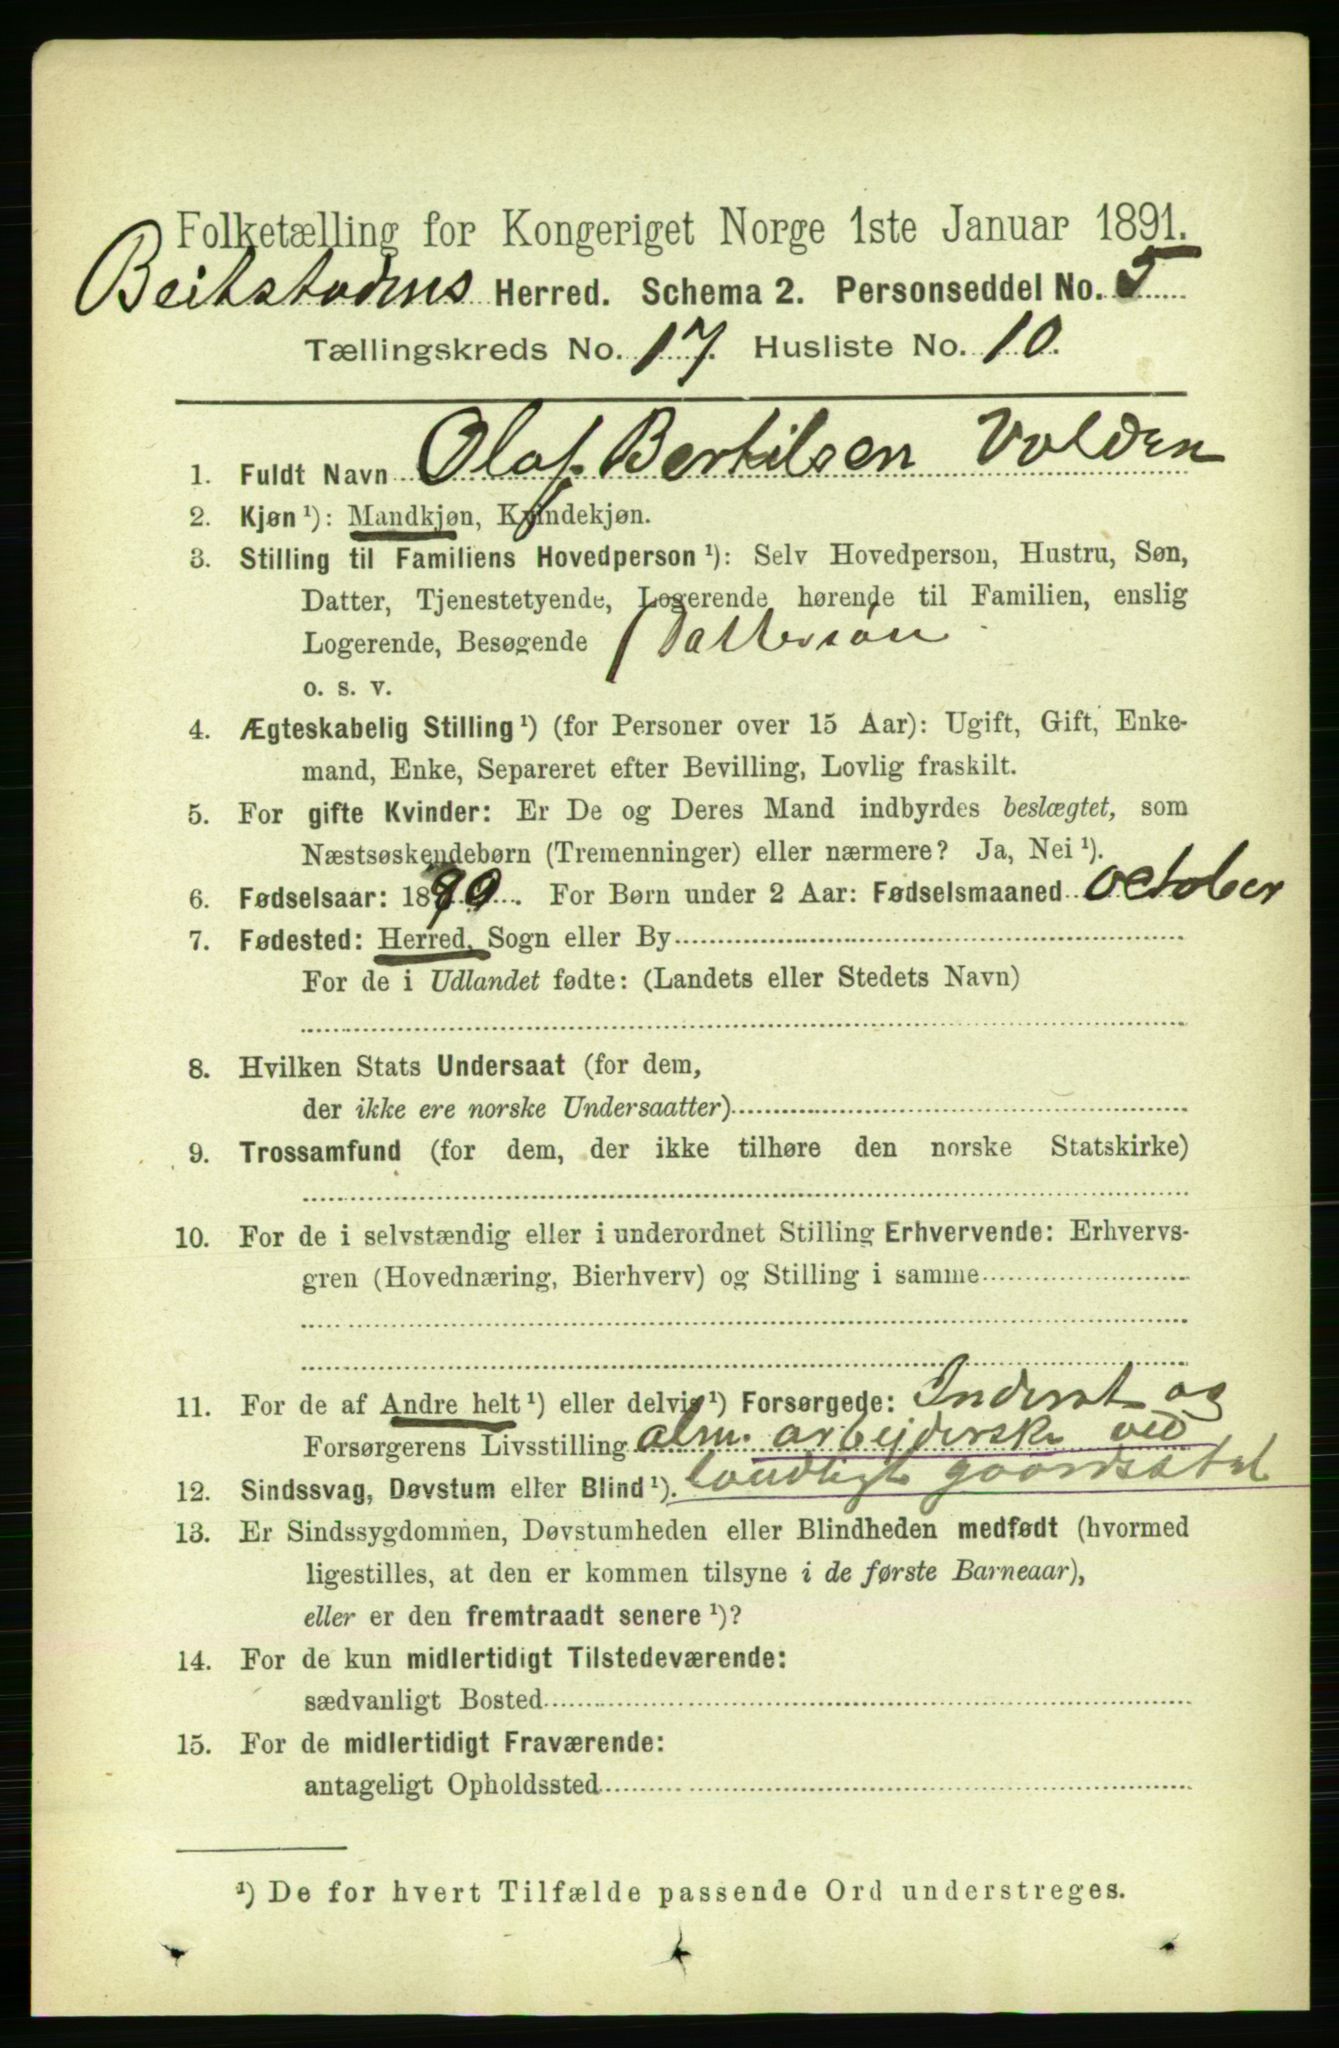 Folketælling for Kongeriget Norge 1ste Januar 1891.
Beitstadens Herred. Schema 2. Personseddel No. 5
Tællingskreds No. 17. Husliste No. 10.
1. Fuldt Navn Olaf Bertilsen Volden
2. Kjøn ¹): Mandkjøn, Kvindekjøn.
3. Stilling til Familiens Hovedperson ¹): Selv Hovedperson, Hustru, Søn,
Datter, Tjenestetyende, Logerende hørende til Familien, enslig
Logerende, Besøgende Dattersøn
o. s. v.
4. Ægteskabelig Stilling ¹) (for Personer over 15 Aar): Ugift, Gift, Enke-
mand, Enke, Separeret efter Bevilling, Lovlig fraskilt.
5. For gifte Kvinder: Er De og Deres Mand indbyrdes beslægtet, som
Næstsøskendebørn (Tremenninger) eller nærmere? Ja, Nei ¹).
6. Fødselsaar: 1890. For Børn under 2 Aar: Fødselsmaaned October
7. Fødested: Herred, Sogn eller By
For de i Udlandet fødte: (Landets eller Stedets Navn)
8. Hvilken Stats Undersaat (for dem,
der ikke ere norske Undersaatter)
9. Trossamfund (for dem, der ikke tilhøre den norske Statskirke)
10. For de i selvstændig eller i underordnet Stilling Erhvervende: Erhvervs-
gren (Hovednæring, Bierhverv) og Stilling i samme
11. For de af Andre helt ¹) eller delvis ¹) Forsørgede: Inderst og
Forsørgerens Livsstilling alm. arbejderske ved
12. Sindssvag, Døvstum eller Blind ¹). landligt gaardsstel
13. Er Sindssygdommen, Døvstumheden eller Blindheden medfødt (hvormed
ligestilles, at den er kommen tilsyne i de første Barneaar),
eller er den fremtraadt senere ¹)?
14. For de kun midlertidigt Tilstedeværende:
sædvanligt Bosted
15. For de midlertidigt Fraværende:
antageligt Opholdssted
¹) De for hvert Tilfælde passende Ord understreges.